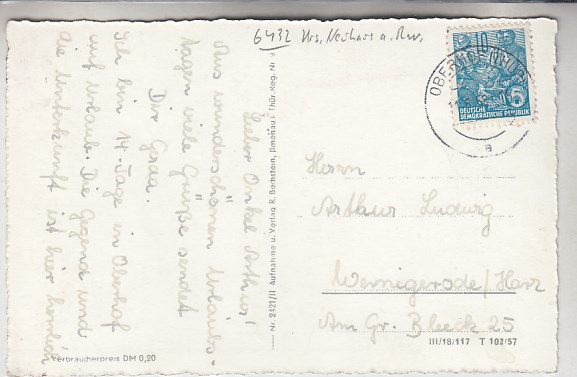 6432 Urs, Neuhaus a. Rw,
Lieber Onkel Arthur!
Aus wunderschönen Urlaubs-
tagen viele Grüße sendet
Dir Gesa.
Ich bin 14-Tage in Oberhof
auf Urlaub. Die Gegend und
die Unterkunft ist hier herrlich
Verbraucherpreis DM 0,20
Nr. 2421/11 Aufnahme u. Verlag R. Bechstein, Ilmenau i. Thür. Reg. Nr. V
10
DEUTSCHE
DEMOKRATISCHE REPUBLIK
5
OBERHOF
a
Herrn
Arthur Ludwig
Wernigerode/Harz
Am Gr. Bleek 25
III/18/117 T 102/57